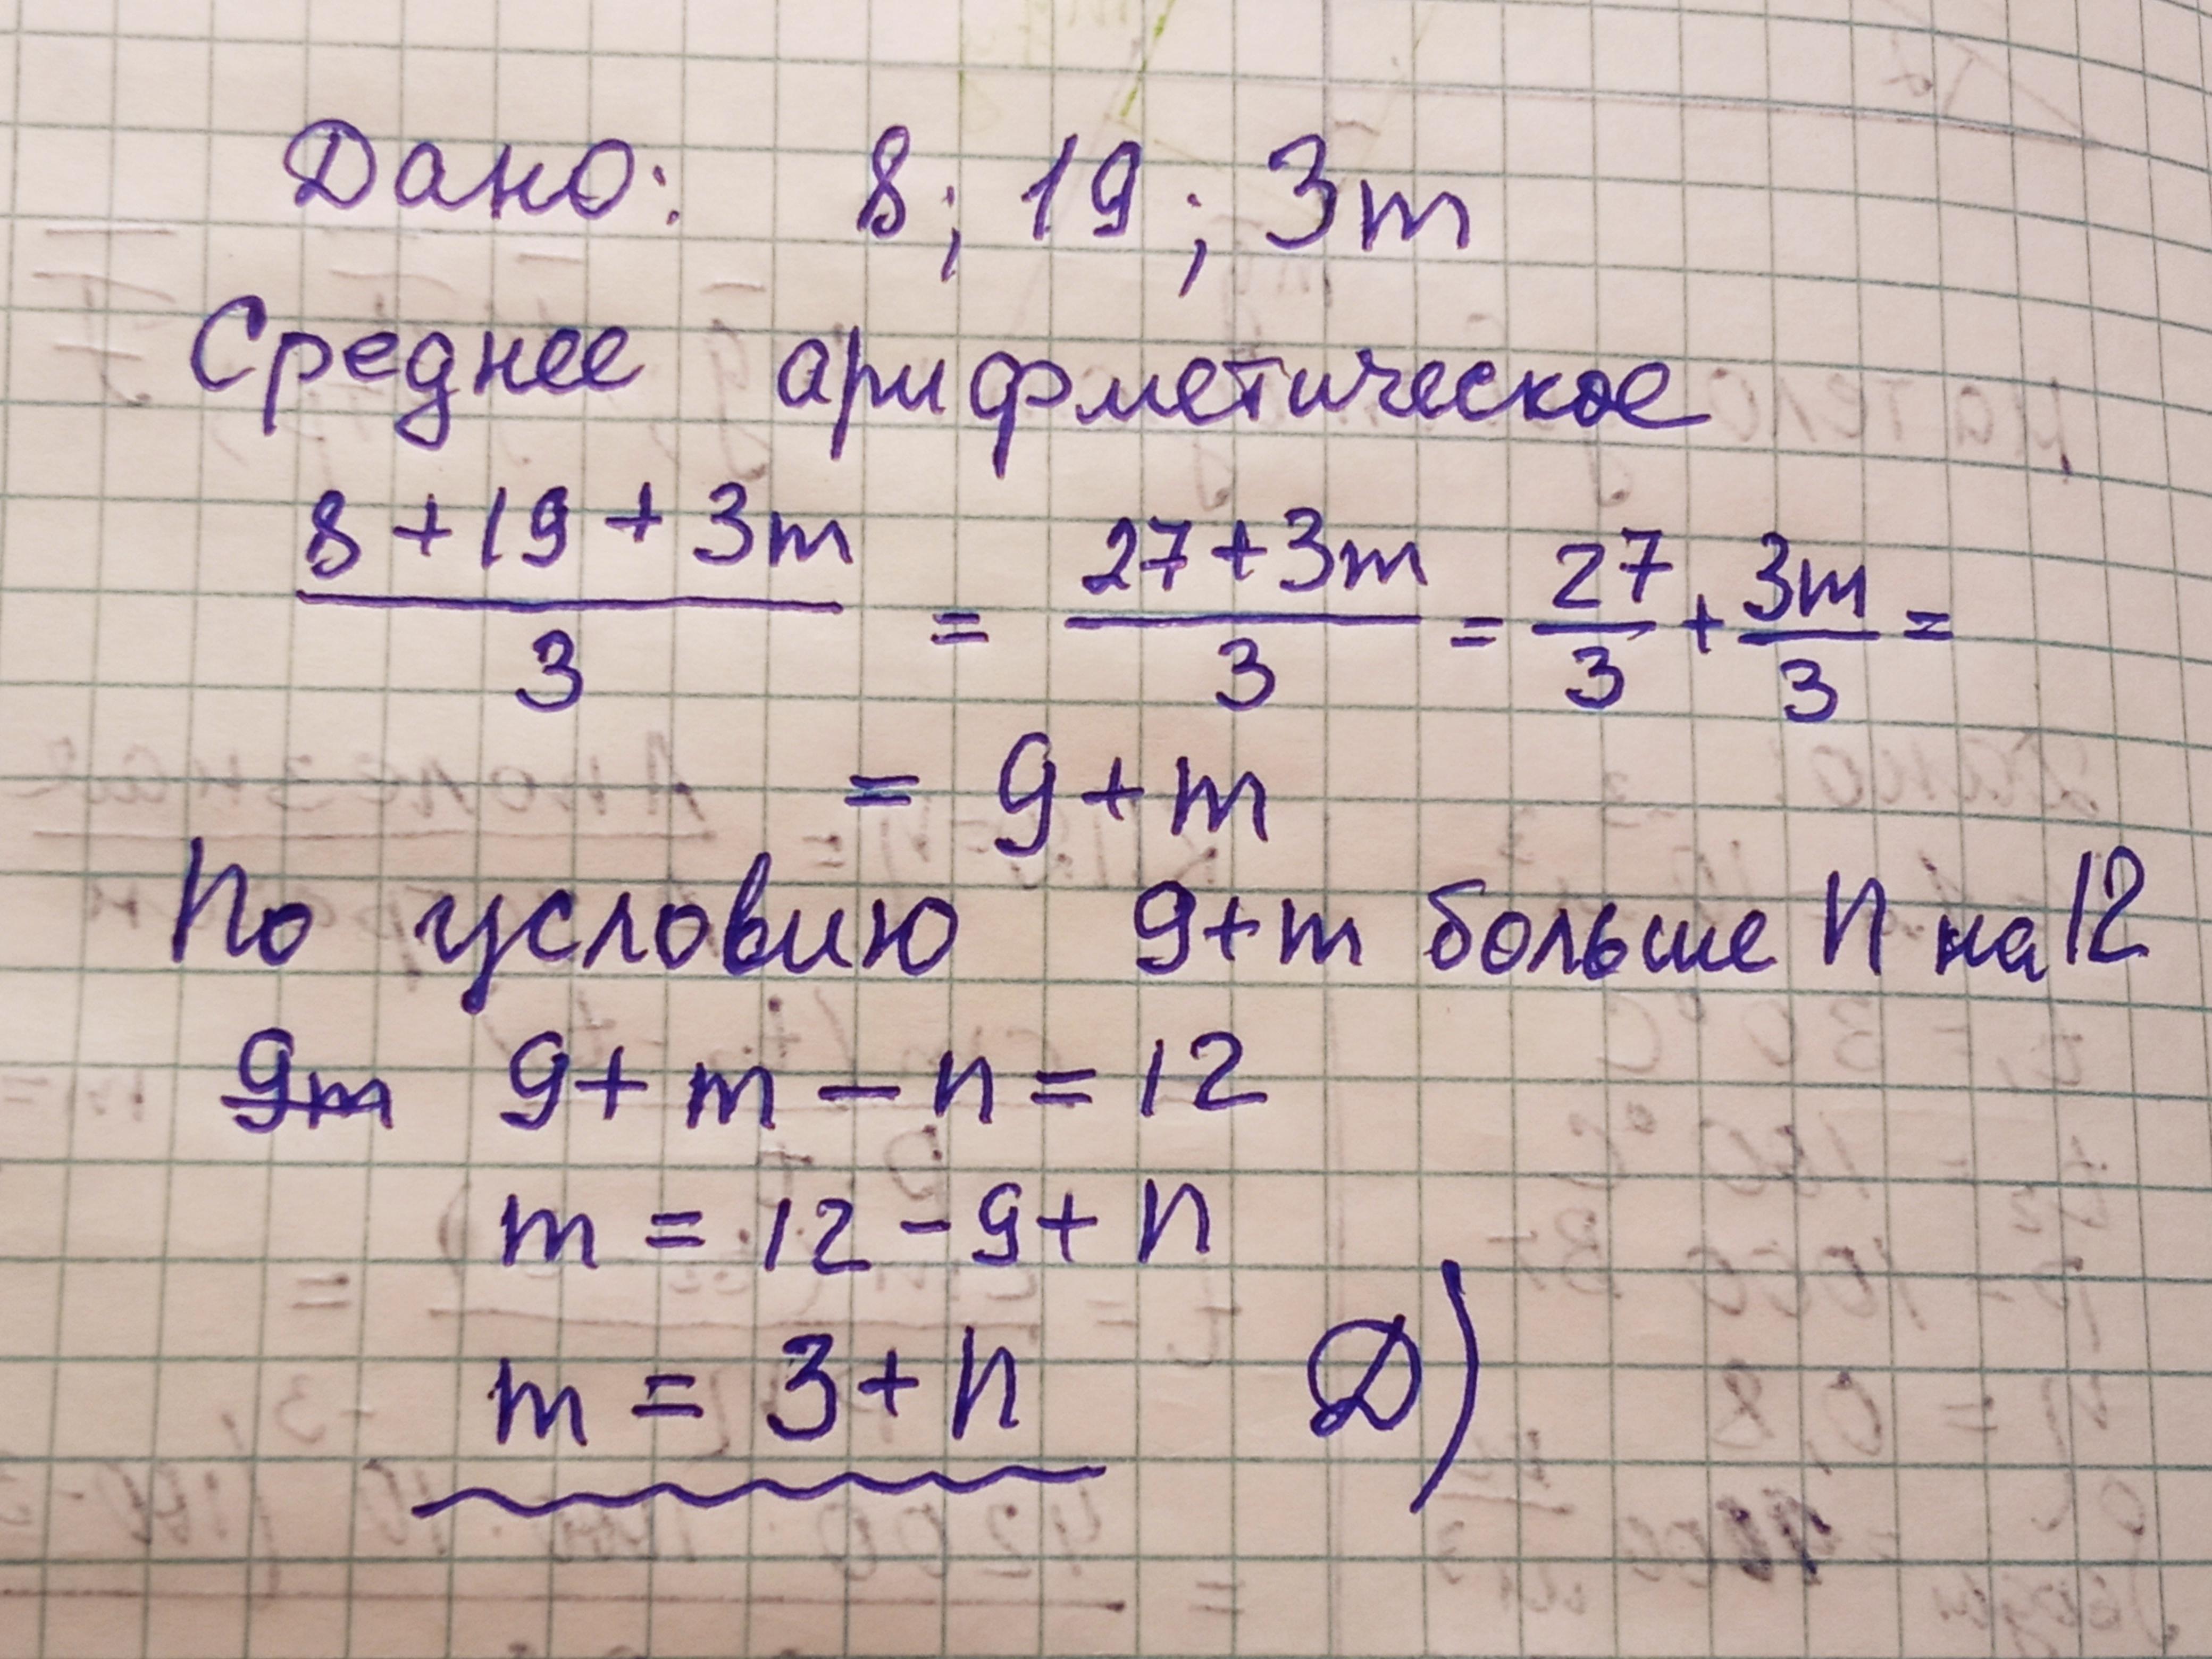 Дано: 8; 19; 3m
Среднее арифметическое
8 + 19 + 3m / 3 = 27 + 3m / 3 = 27/3 + 3m/3 =
= 9 + m
По условию 9+m больше n на 12
9m 9 + m - n = 12
m = 12 - 9 + n
m = 3 + n Д)